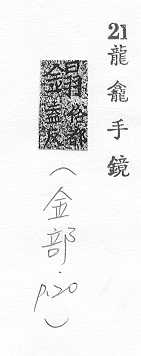 21 龍龕手鏡
(金部.p.20)